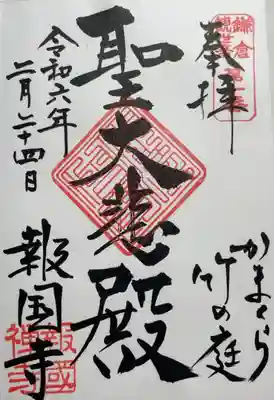 鎌倉
奉拝
かまくら
竹の庭
聖大悲殿
令和六年
二月二十四日
報国寺
報國
禅寺